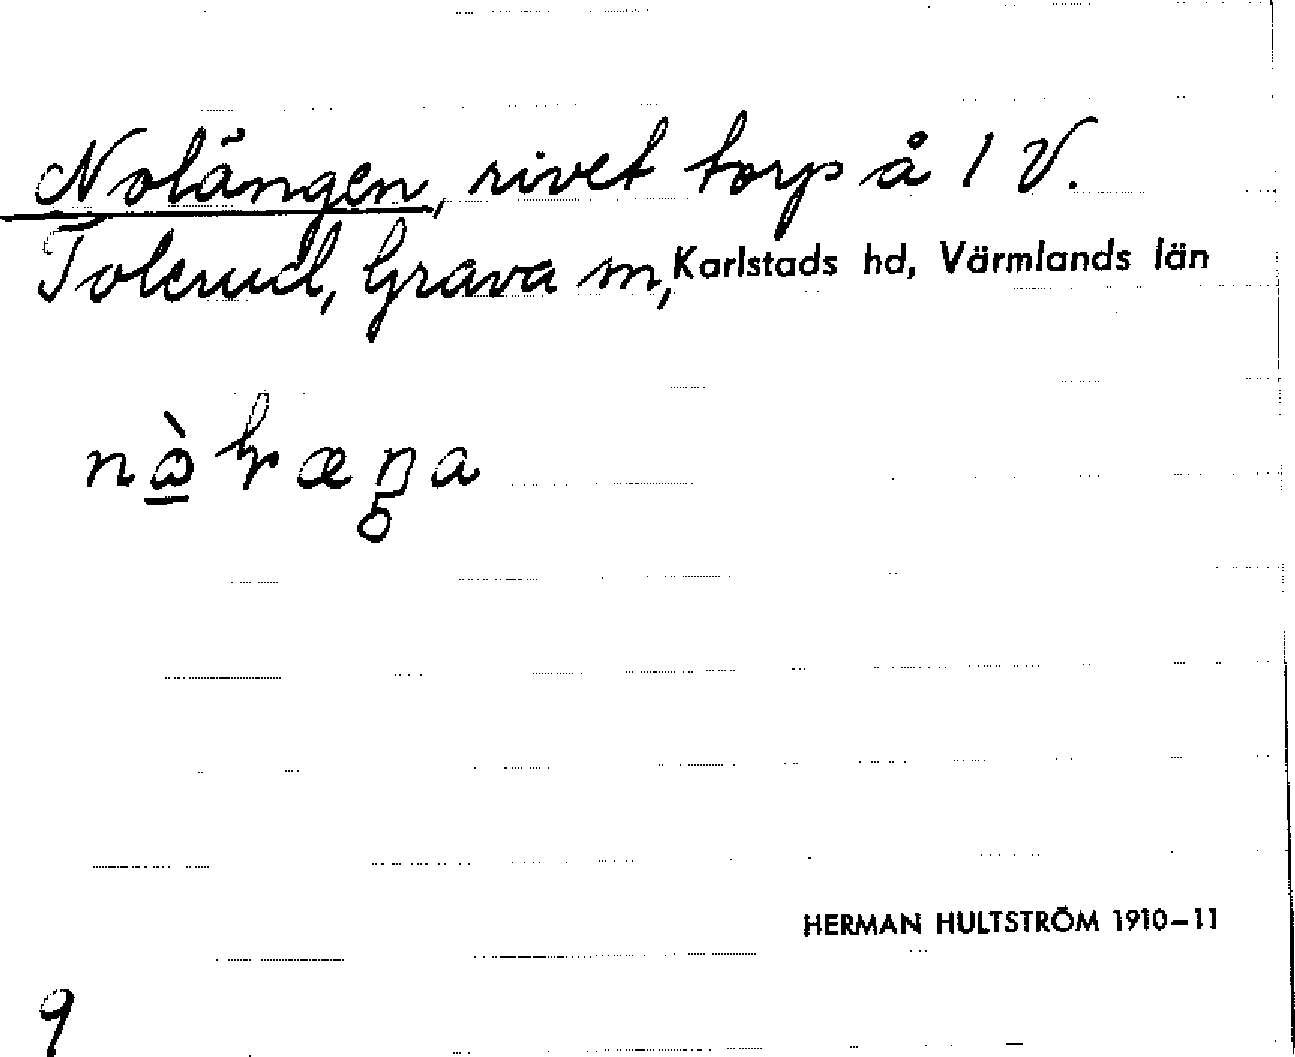 Nolängen, rivet torp å 1 V.
Tolerud, Grava sn, Karlstads hd, Värmlands län
HERMAN HULTSTRÖM 1910–11
9